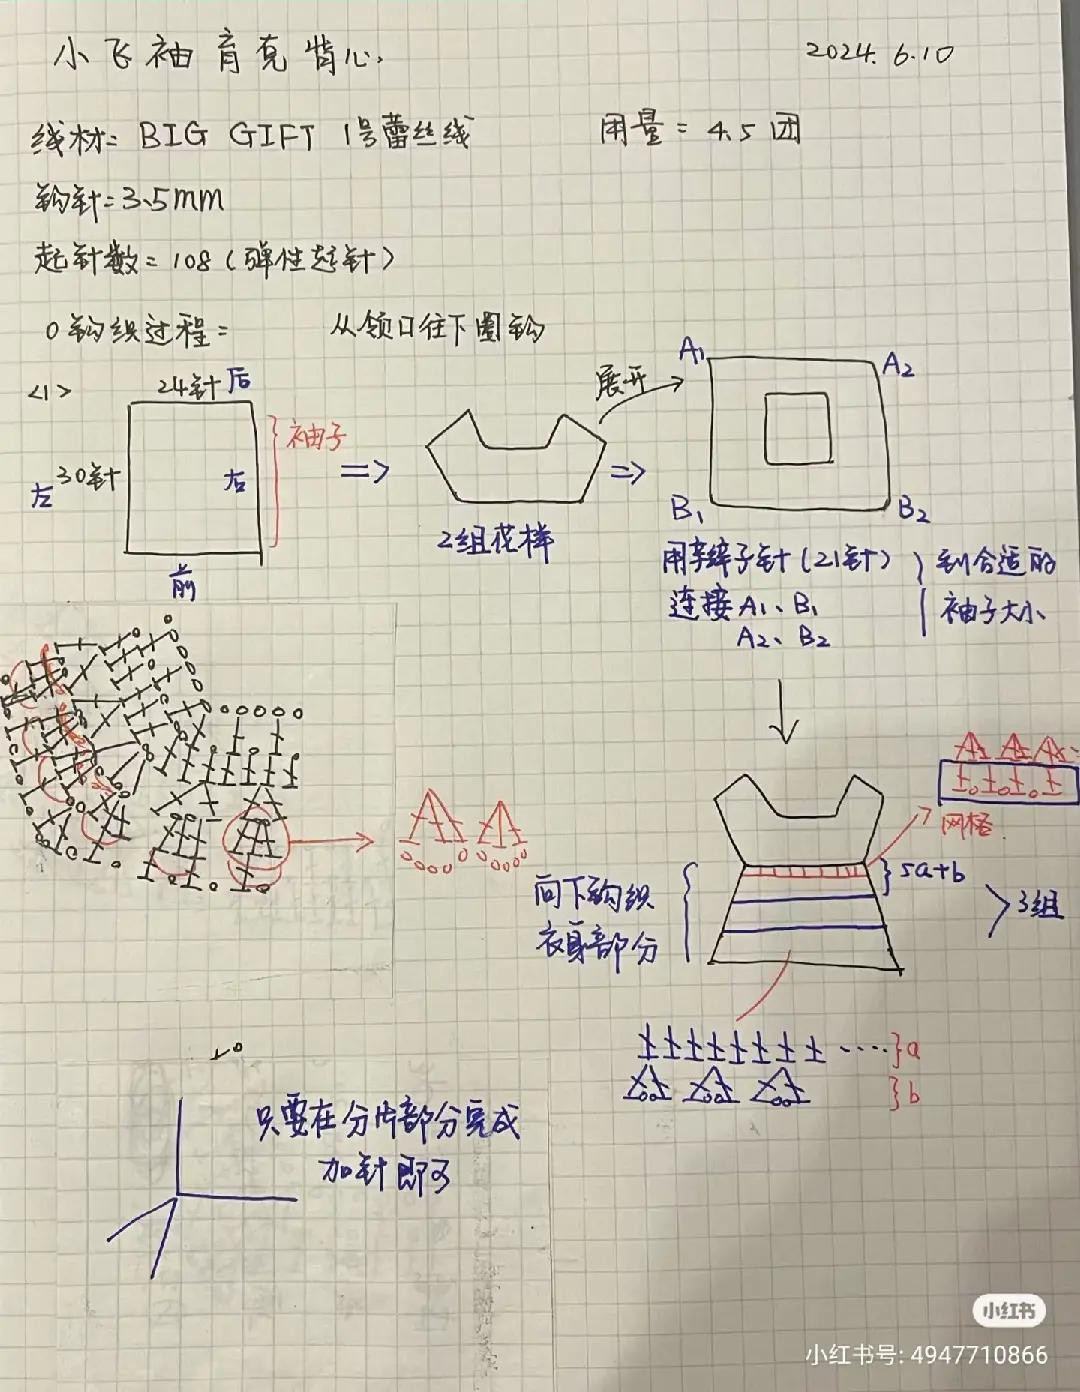 小飞袖育克背心.
2024.6.10
线材: BIG GIFT 1号蕾丝线
用量=4.5团
钩针=3.5mm
起针数=108(弹性起针)
0钩织过程=
从领口往下圈钩
<1>
24针 后
袖子
左 30针
右
前
2组花样
展开
A1
A2
B1
B2
用辫子针(21针)
连接A1、B1
A2、B2
到合适的
袖子大小
网格
5a+b
3组
向下钩织
衣身部分
a
b
只要在分片部分完成
加针即可
小红书
小红书号: 4947710866